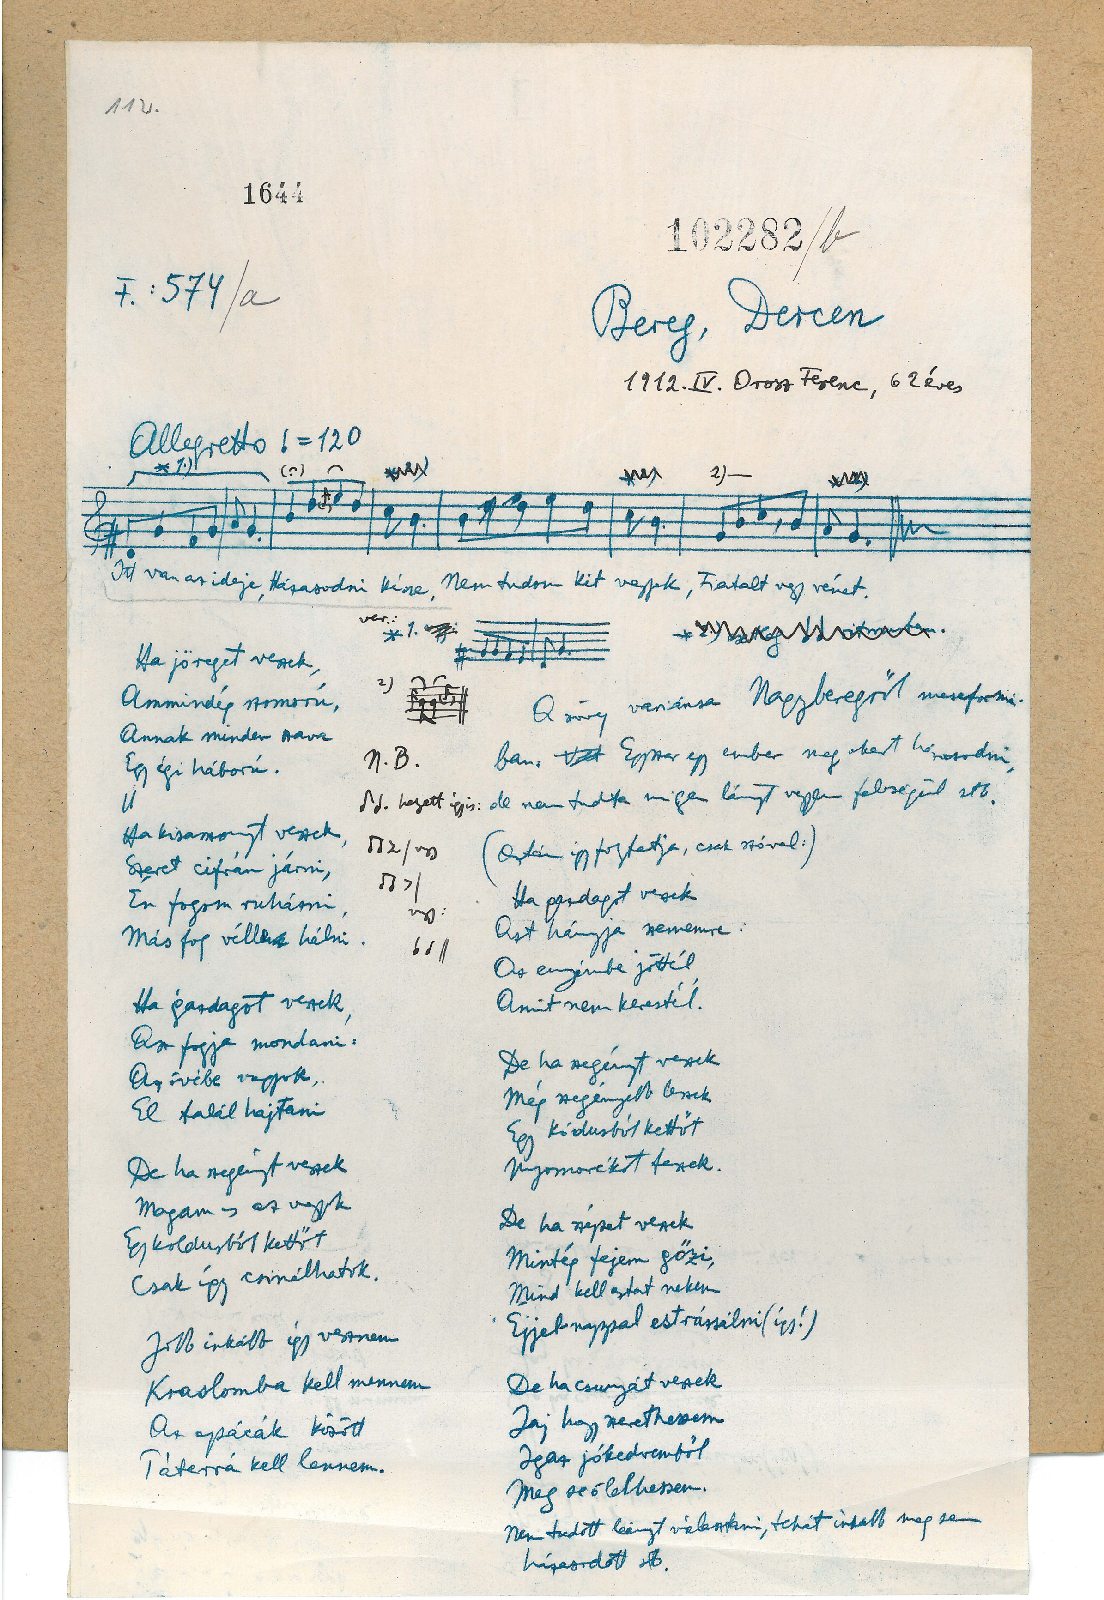 112.
1644
102282/b
F.: 574/a
Bereg, Dercen
1912. IV. Orosz Ferenc, 62 éves
Allegretto = 120
* 1.)
2)
Itt van az ideje, Házasodni kéne, Nem tudom kit vegyek, Fiatalt vagy vénet.
var.:
* 1.
Ha jöreget veszek,
Ammindég szomorú,
Annak minden szava
Egy égi háború.
Ha kisasszonyt veszek,
Szeret cifrán járni,
Én fogom ruházni,
Más fog vélle hálni.
Ha gazdagot veszek,
Asz fogja mondani:
Az övébe vagyok,
El talál hajtani
De ha szegényt veszek
Magam is az vagyok
Egy koldusból kettőt
Csak így csinálhatok.
Jobb inkább így vesznem
Kraslomba kell mennem
Az apácák között
Táterrá kell lennem.
2)
N.B.
helyett így is:
vagy
vagy:
A szöveg variánsa Nagyberegről meseformá-
ban. Egyszer egy ember meg akart házasodni,
de nem tudta milyen lányt vegyen feleségül stb.
(Aztán így folytatja, csak szóval:)
Ha gazdagot veszek
Azt hányja szememre:
Az enyémbe jöttél,
Amit nem kerestél.
De ha szegényt veszek
Még szegényebb leszek
Egy kódusból kettőt
Nyomorékot teszek.
De ha szépet veszek
Mintég fejem gőzi,
Mind kell aztat nekem
Éjjel nappal estrázsálni (így!)
De ha csunyát veszek
Jaj hogy szerethessem
Igaz jókedvemből
Meg se ölelhessem.
Nem tudott leányt választani, tehát inkább meg sem
házasodott stb.